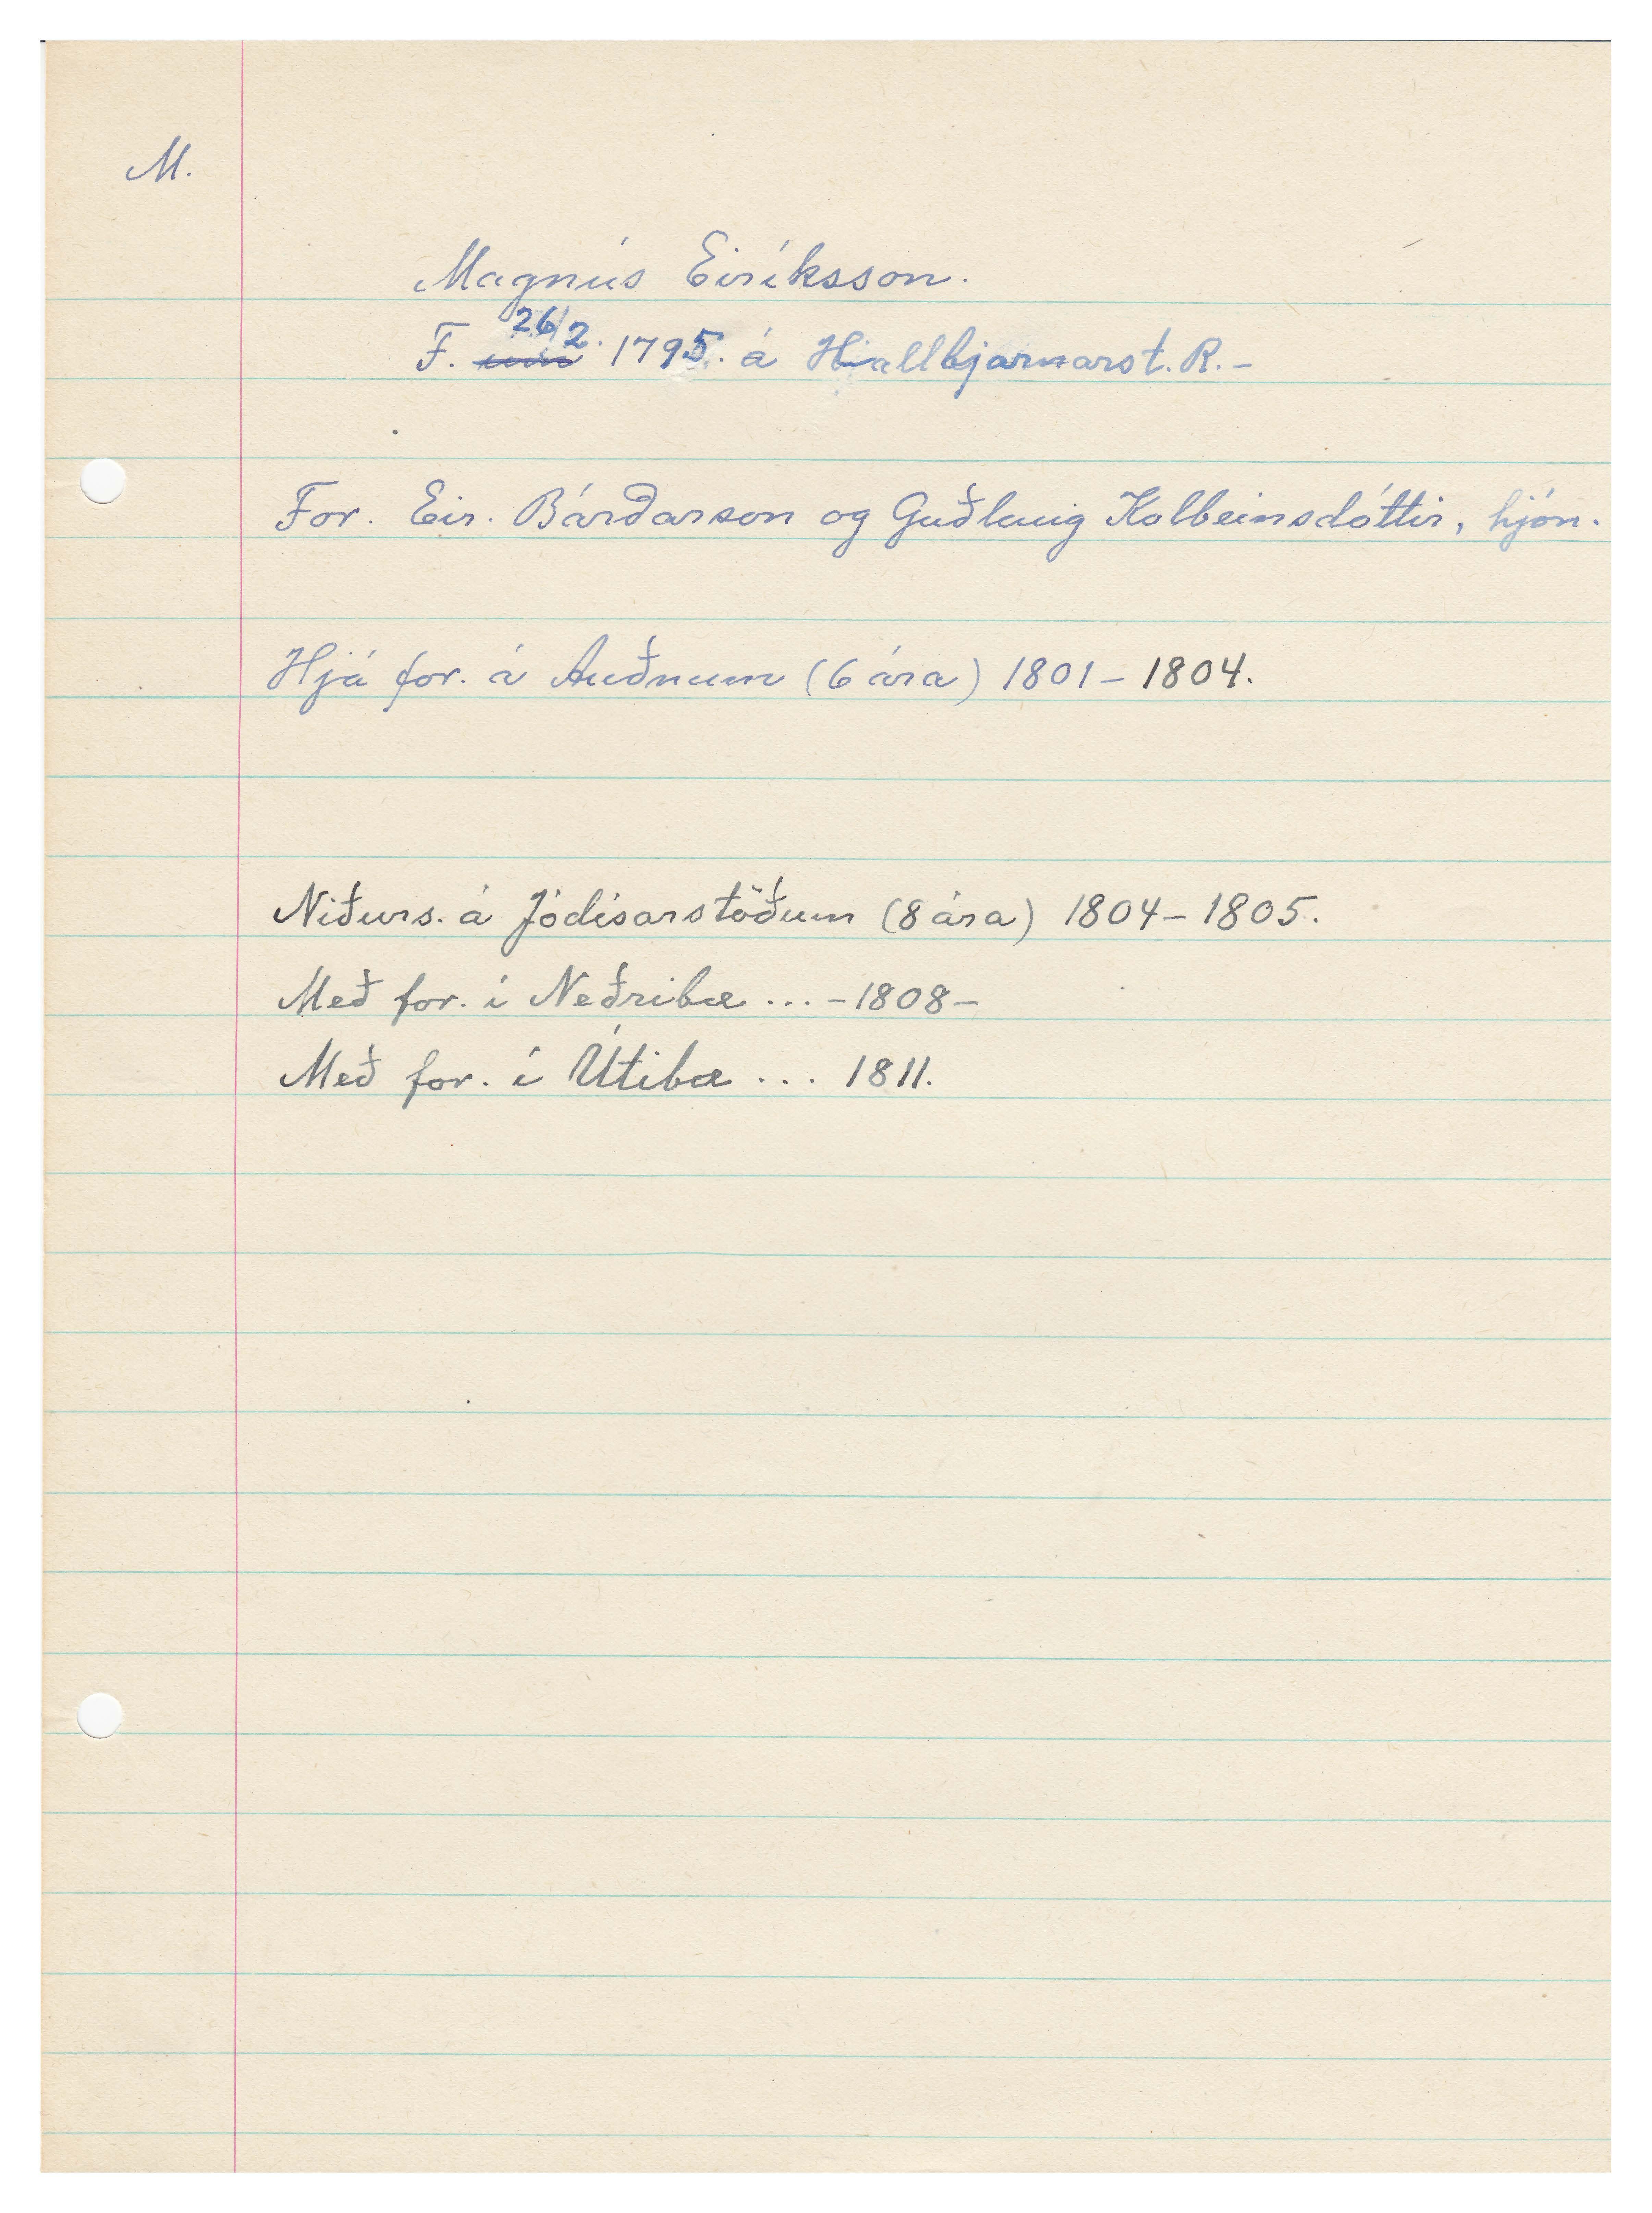 M.
Magnús Eiríksson.
F. 26/2. 1795. á Hallbjarnarst. R.-
For. Eir. Bárðarson og Guðlaug Kolbeinsdóttir, hjón.
Hjá for. á Auðnum (6 ára) 1801-1804.
Niðurs. á Jódísarstöðum (8 ára) 1804-1805.
Með for. í Neðribæ ... -1808-
Með for. í Útibæ ... 1811.